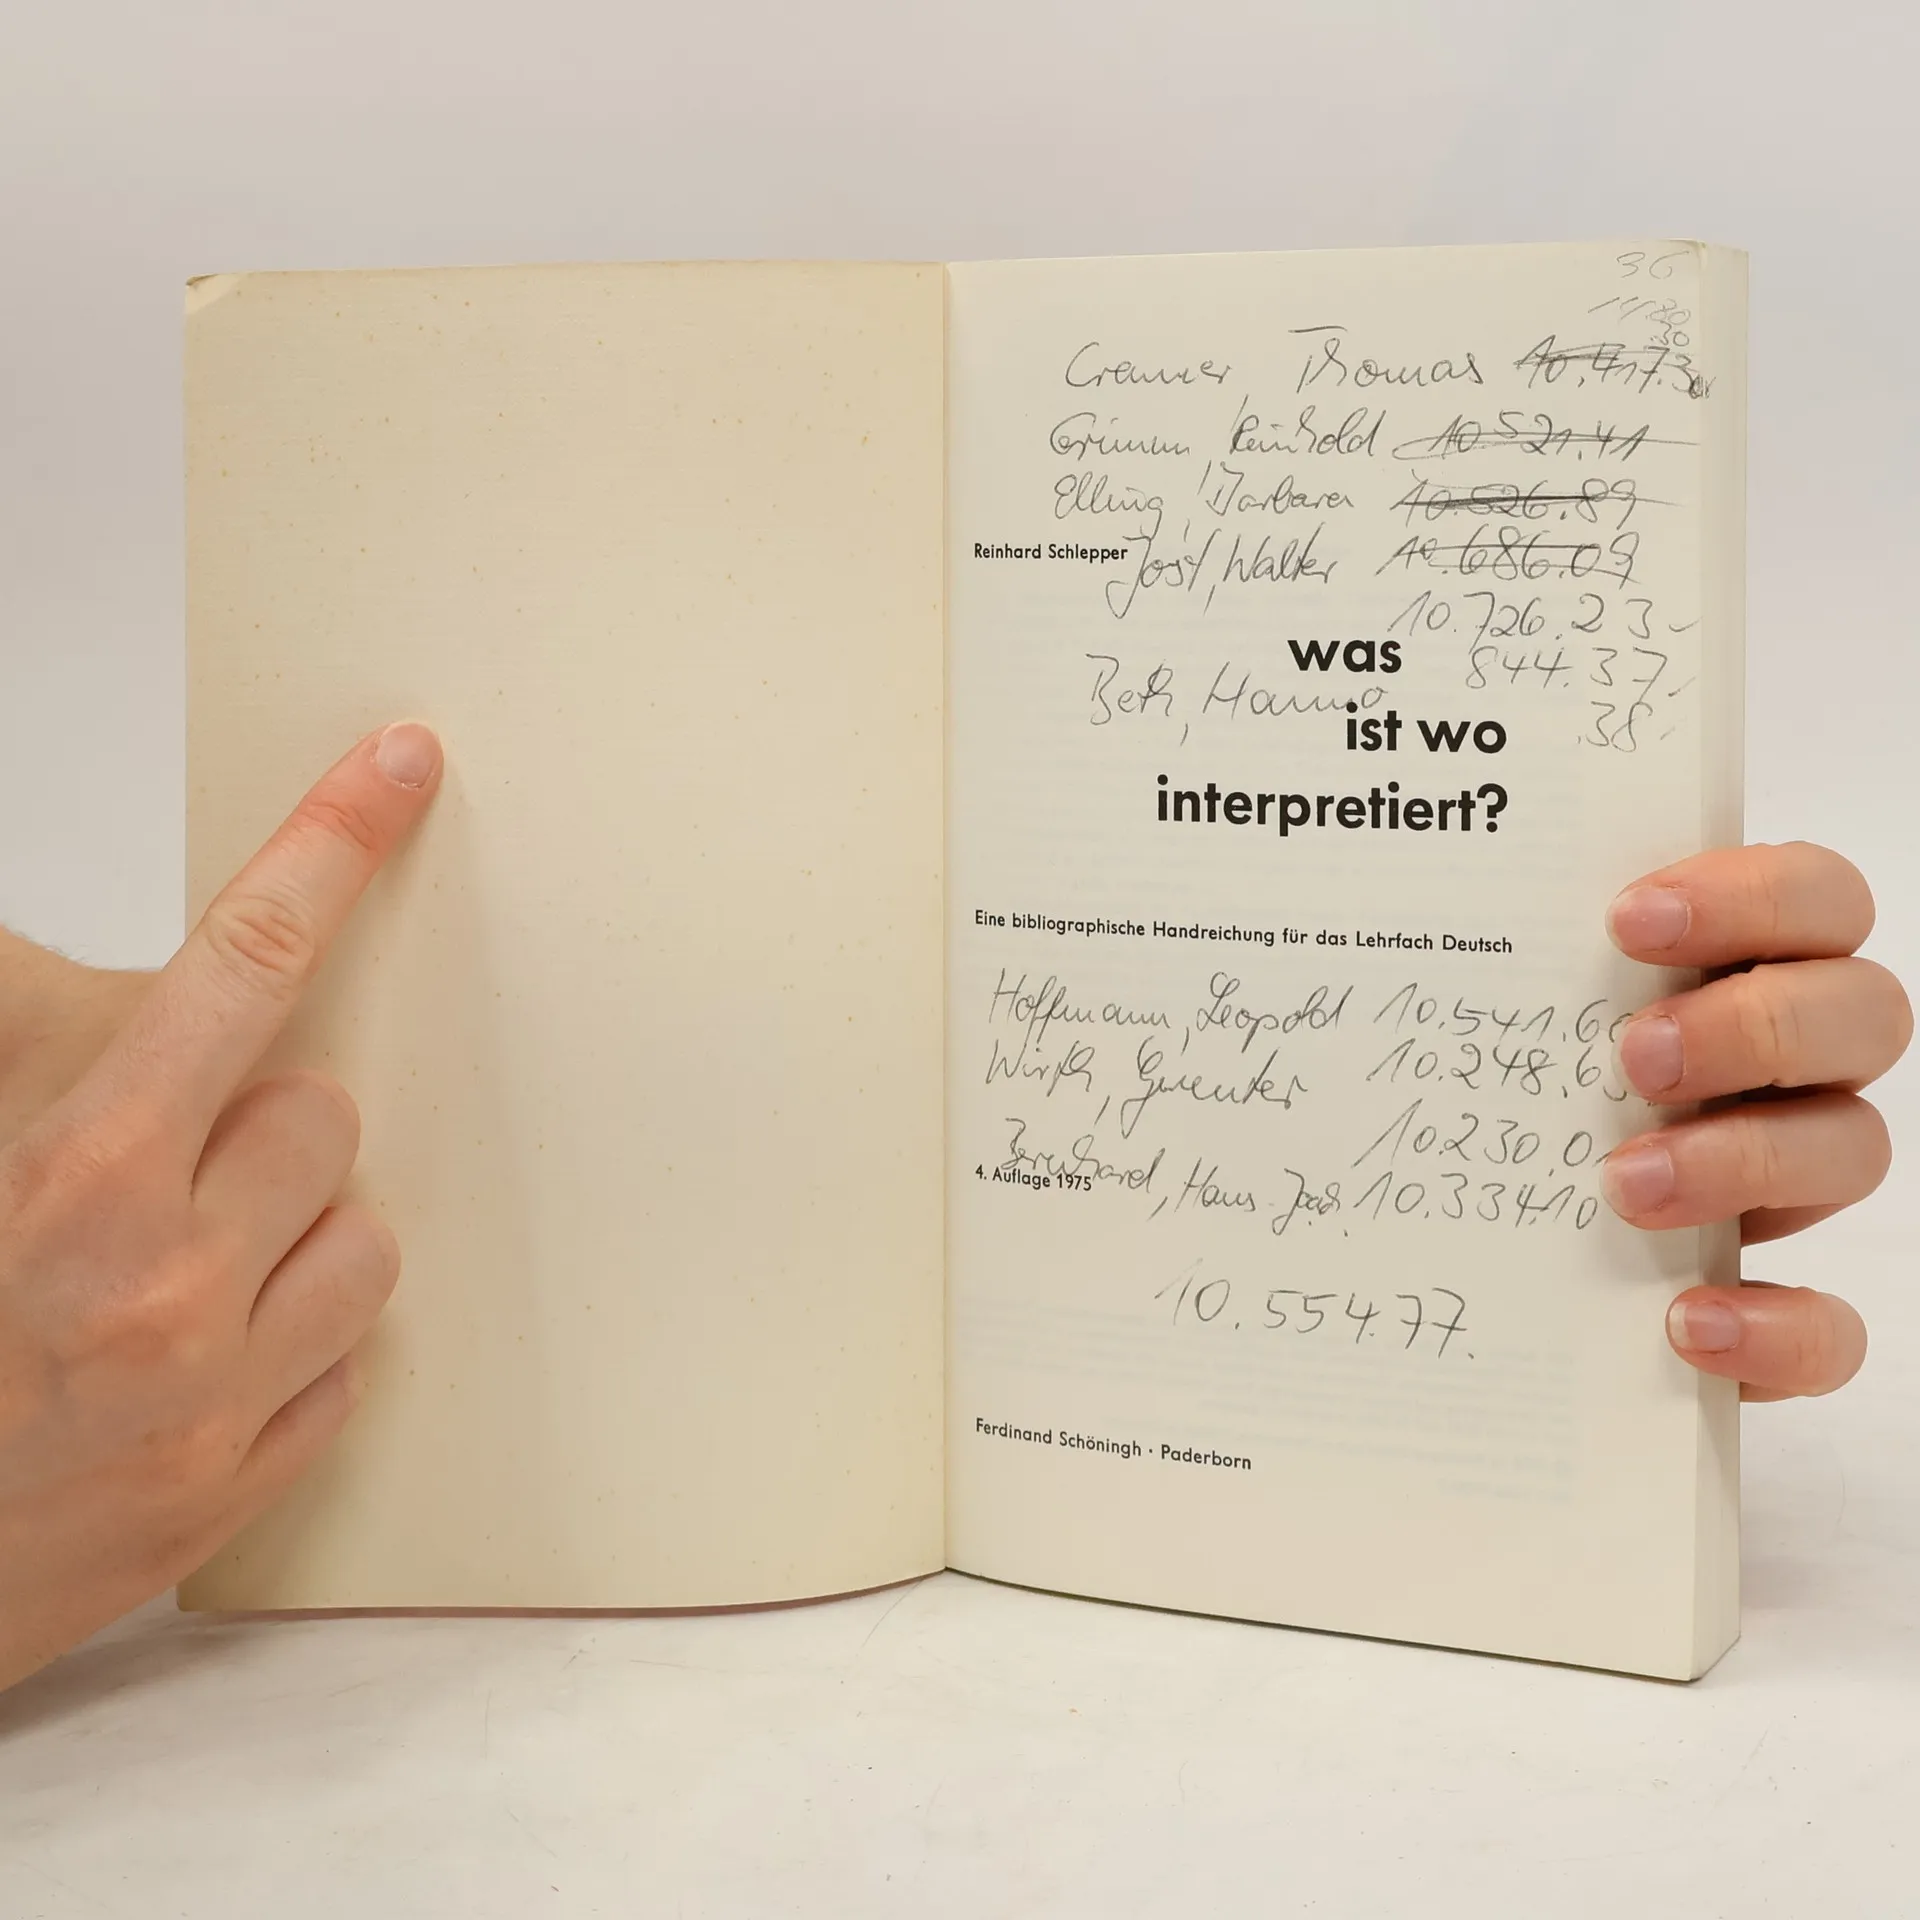 36
Cremer Thomas 10.417.3
Grimm, Reinhold 10.521.41
Elling, Barbara 10.526.89
Reinhard Schlepper
Jost, Walter 10.686.09
10.726.23
was
844.37
Beth, Hanno
.38
ist wo
interpretiert?
Eine bibliographische Handreichung für das Lehrfach Deutsch
Hoffmann, Leopold 10.541.6
Wirth, Guenter 10.248.6
10.230.0
Bernhard, Hans 10.334.10
4. Auflage 1975
10.554.77.
Ferdinand Schöningh · Paderborn